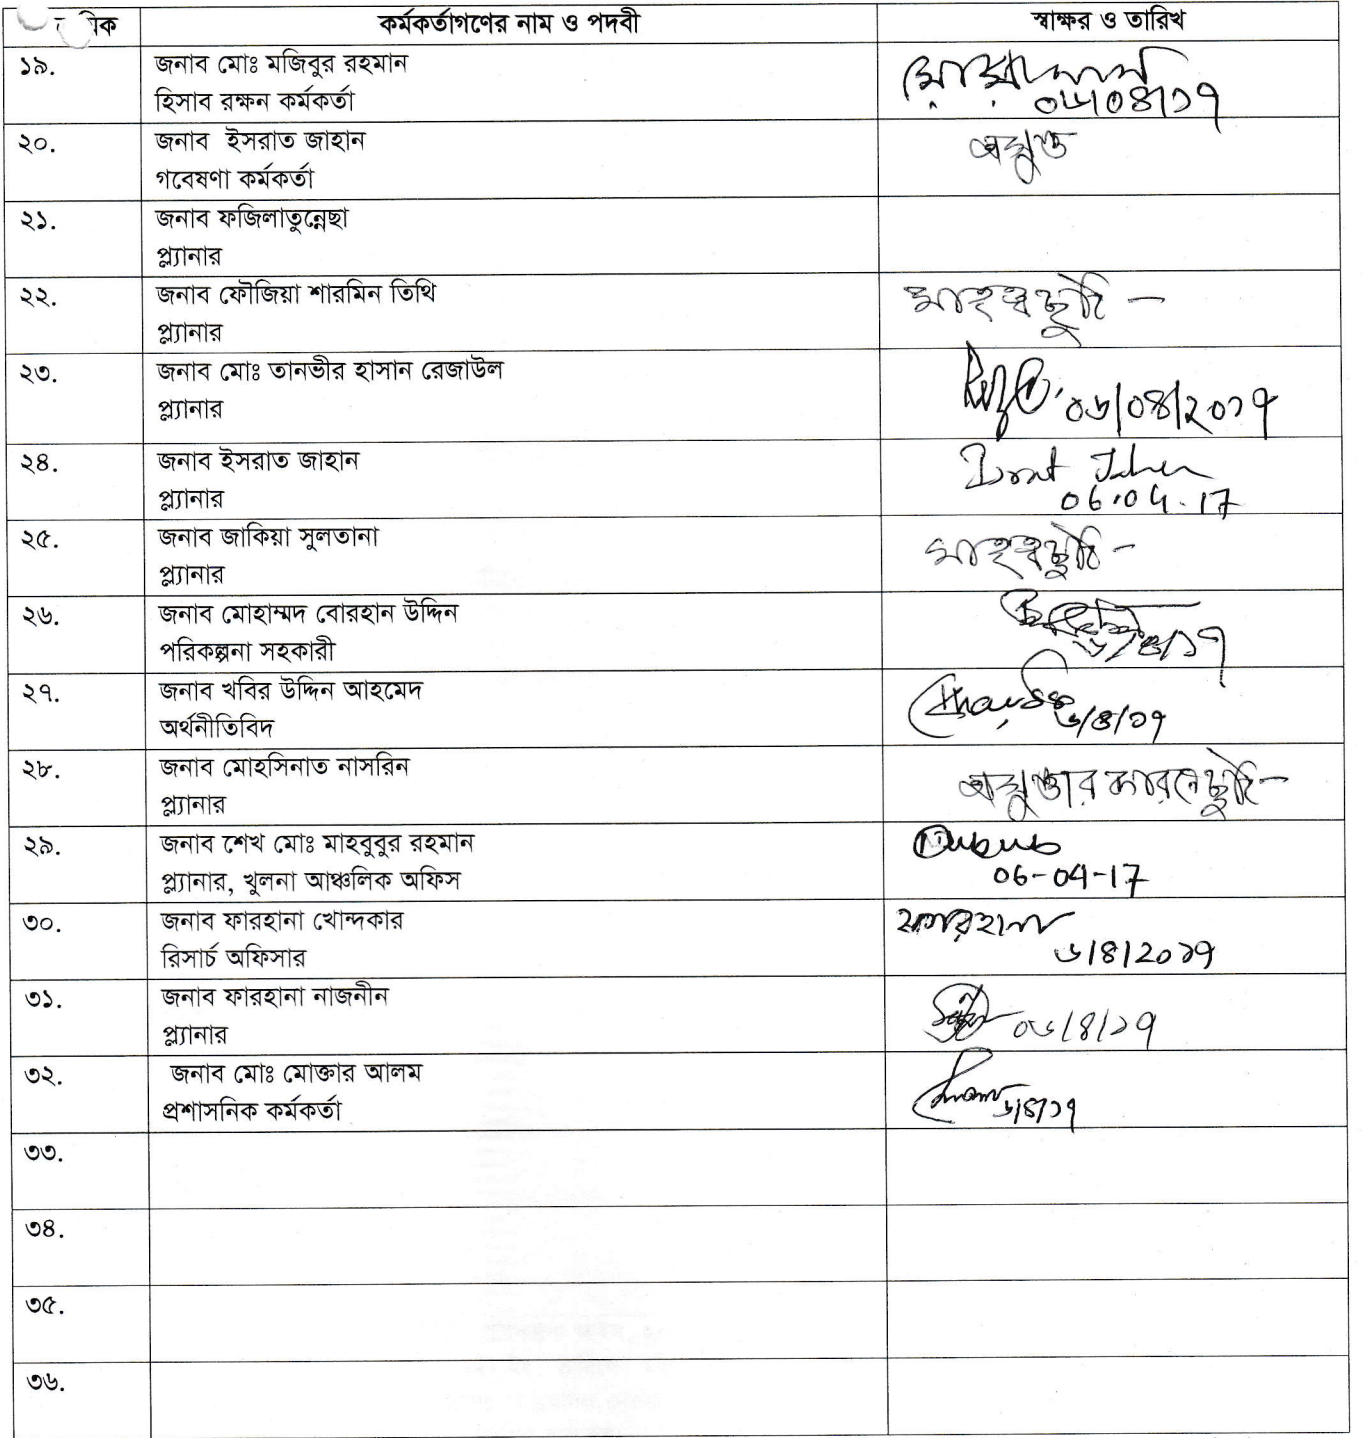 কর্মকর্তাগণের নাম ও পদবী স্বাক্ষর ও তারিখ
১৯. জনাব মোঃ মজিবুর রহমান
হিসাব রক্ষন কর্মকর্তা ০৬/০৪/১৭
২০. জনাব ইসরাত জাহান
গবেষণা কর্মকর্তা
২১. জনাব ফজিলাতুন্নেছা
প্ল্যানার
২২. জনাব ফৌজিয়া শারমিন তিথি মাতৃত্ব ছুটি -
প্ল্যানার
২৩. জনাব মোঃ তানভীর হাসান রেজাউল
প্ল্যানার ০৬/০৪/২০১৭
২৪. জনাব ইসরাত জাহান
প্ল্যানার 06.04.17
২৫. জনাব জাকিয়া সুলতানা মাতৃত্ব ছুটি -
প্ল্যানার
২৬. জনাব মোহাম্মদ বোরহান উদ্দিন
পরিকল্পনা সহকারী ৬/৪/১৭
২৭. জনাব খবির উদ্দিন আহমেদ
অর্থনীতিবিদ ৬/৪/১৭
২৮. জনাব মোহসিনাত নাসরিন
প্ল্যানার
২৯. জনাব শেখ মোঃ মাহবুবুর রহমান
প্ল্যানার, খুলনা আঞ্চলিক অফিস 06-04-17
৩০. জনাব ফারহানা খোন্দকার ফারহানা
রিসার্চ অফিসার ৬/৪/২০১৭
৩১. জনাব ফারহানা নাজনীন
প্ল্যানার ০৬/৪/১৭
৩২. জনাব মোঃ মোক্তার আলম
প্রশাসনিক কর্মকর্তা ৬/৪/১৭
৩৩.
৩৪.
৩৫.
৩৬.